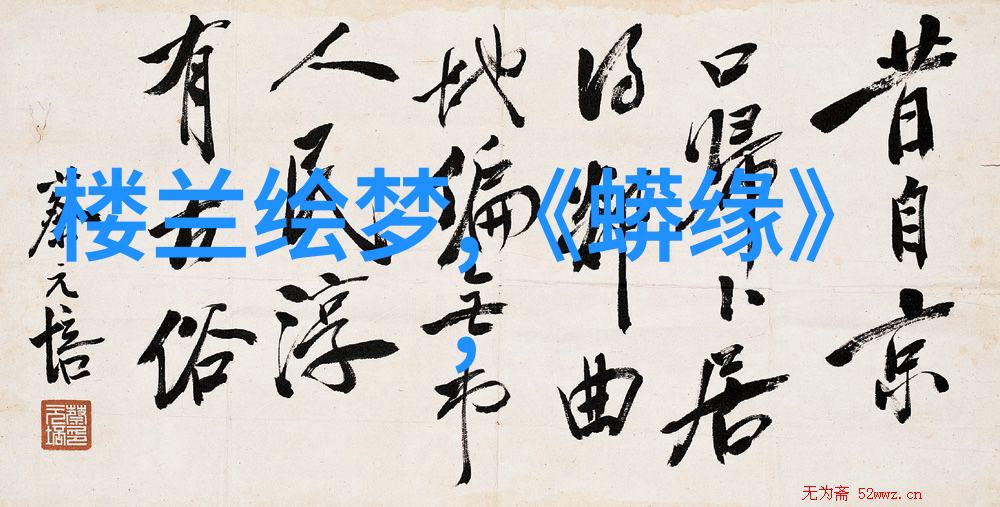 楼兰绘梦，《蟒缘》
，
昔自京
口歸卜居
得曲
地偏無市
人民淳
有古俗
蔡元培
无为斋 52wwz.cn